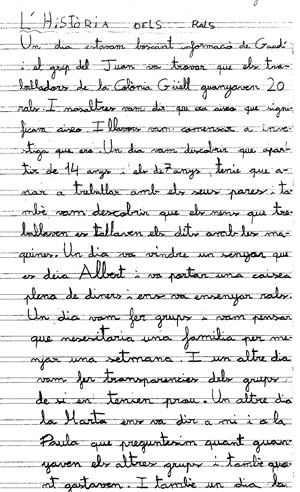 L'HISTÒRIA DELS RALS
Un dia estavam buscant informacó de Gaudí
i el grup del Juan va trovar que els tre-
balladors de la Colònia Güell guanyaven 20
rals. I nosaltres vam dir que era aixo que signi-
ficava aixo. I llavors vam comensar a inve-
stiga que era. Un dia vam descobrir que apar-
tir de 14 anys i els de 7 anys tenie que a-
nar a treballar amb els seus pares i ta-
mbè vam descobrir que els nens que tre-
ballaven es tallaven els dits amb les ma-
quines. Un dia va vindre un senyor que
es deia Albert i va portar una caixea
plena de diners i ens va ensenyar rals.
Un dia vam fer grups i vam pensar
que nesesitaria una familia per me-
njar una setmana. I un altre dia
vam fer transparencies dels grups
de si en tenien prou. Un altre dia
la Marta ens va dir a mi i a la
Paula que preguntesim quant guan-
yaven els altres grups i també qua-
nt gastaven. I també un dia la